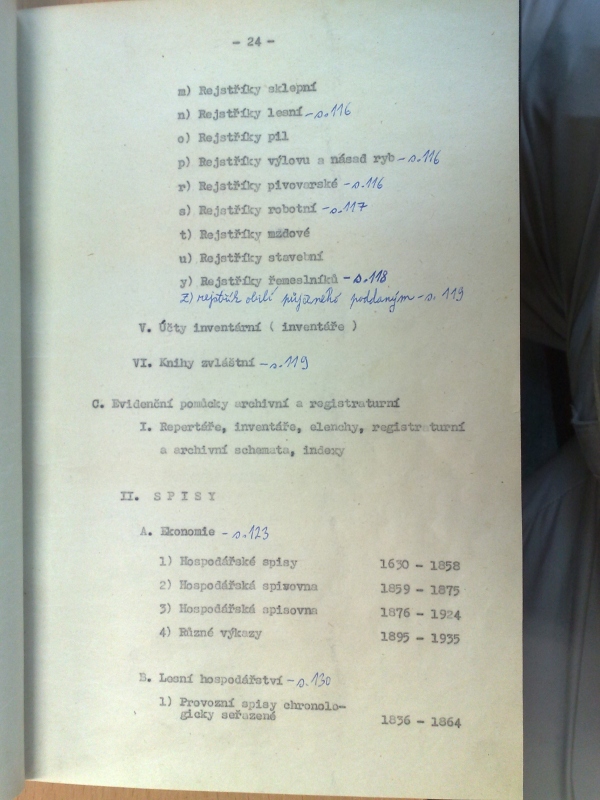 - 24 -
m) Rejstříky sklepní
n) Rejstříky lesní - s. 116
o) Rejstříky pil
p) Rejstříky výlovu a násad ryb - s. 116
r) Rejstříky pivovarské - s. 116
s) Rejstříky robotní - s. 117
t) Rejstříky mzdové
u) Rejstříky stavební
y) Rejstříky řemeslníků - s. 118
z) rejstřík obilí půjčeného poddaným - s. 119
V. Účty inventární ( inventáře )
VI. Knihy zvláštní - s. 119
C. Evidenční pomůcky archivní a registraturní
I. Repertáře, inventáře, elenchy, registraturní
a archivní schemata, indexy
II. S P I S Y
A. Ekonomie - s. 123
1) Hospodářské spisy 1630 - 1858
2) Hospodářská spisovna 1859 - 1875
3) Hospodářská spisovna 1876 - 1924
4) Různé výkazy 1895 - 1935
B. Lesní hospodářství - s. 130
1) Provozní spisy chronolo-
gicky seřazené 1836 - 1864